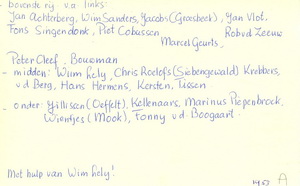 - bovenste rij v.a. links:
Jan Achterberg, Wim Sanders, Jacobs (Groesbeek), Jan Vlot.
Fons Singendonk, Piet Cobussen Rob v d Zeeuw
Marcel Geurts,
Peter Cleef, Bouwman
- midden: Wim Lely, Chris Roelofs (Siebengewald) Krebbers,
v.d Berg, Hans Hermens, Kersten, Tissen
- onder: Jillissen (Oeffelt), Kellenaars, Marinus Piepenbrock,
Wientjes (Mook), Tonny v.d. Boogaart.
Met hulp van Wim Lely!
A